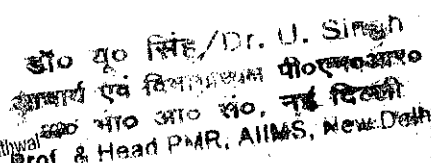 डॉ० यू० सिंह/Dr. U. Singh
आचार्य एवं विभागाध्यक्ष पी०एम०आर०
अ० भा० आ० सं०, नई दिल्ली
Prof. & Head PMR, AIIMS, New Delhi